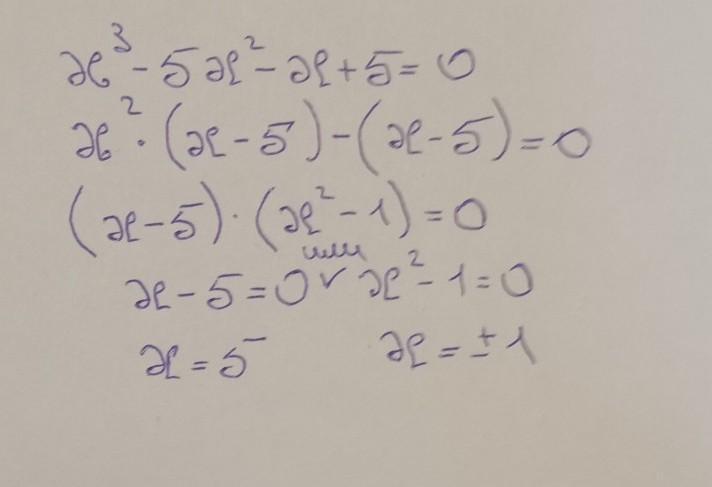 x³ - 5x² - x + 5 = 0
x² · (x - 5) - (x - 5) = 0
(x - 5) · (x² - 1) = 0
или
x - 5 = 0 ∨ x² - 1 = 0
x = 5 x = ± 1